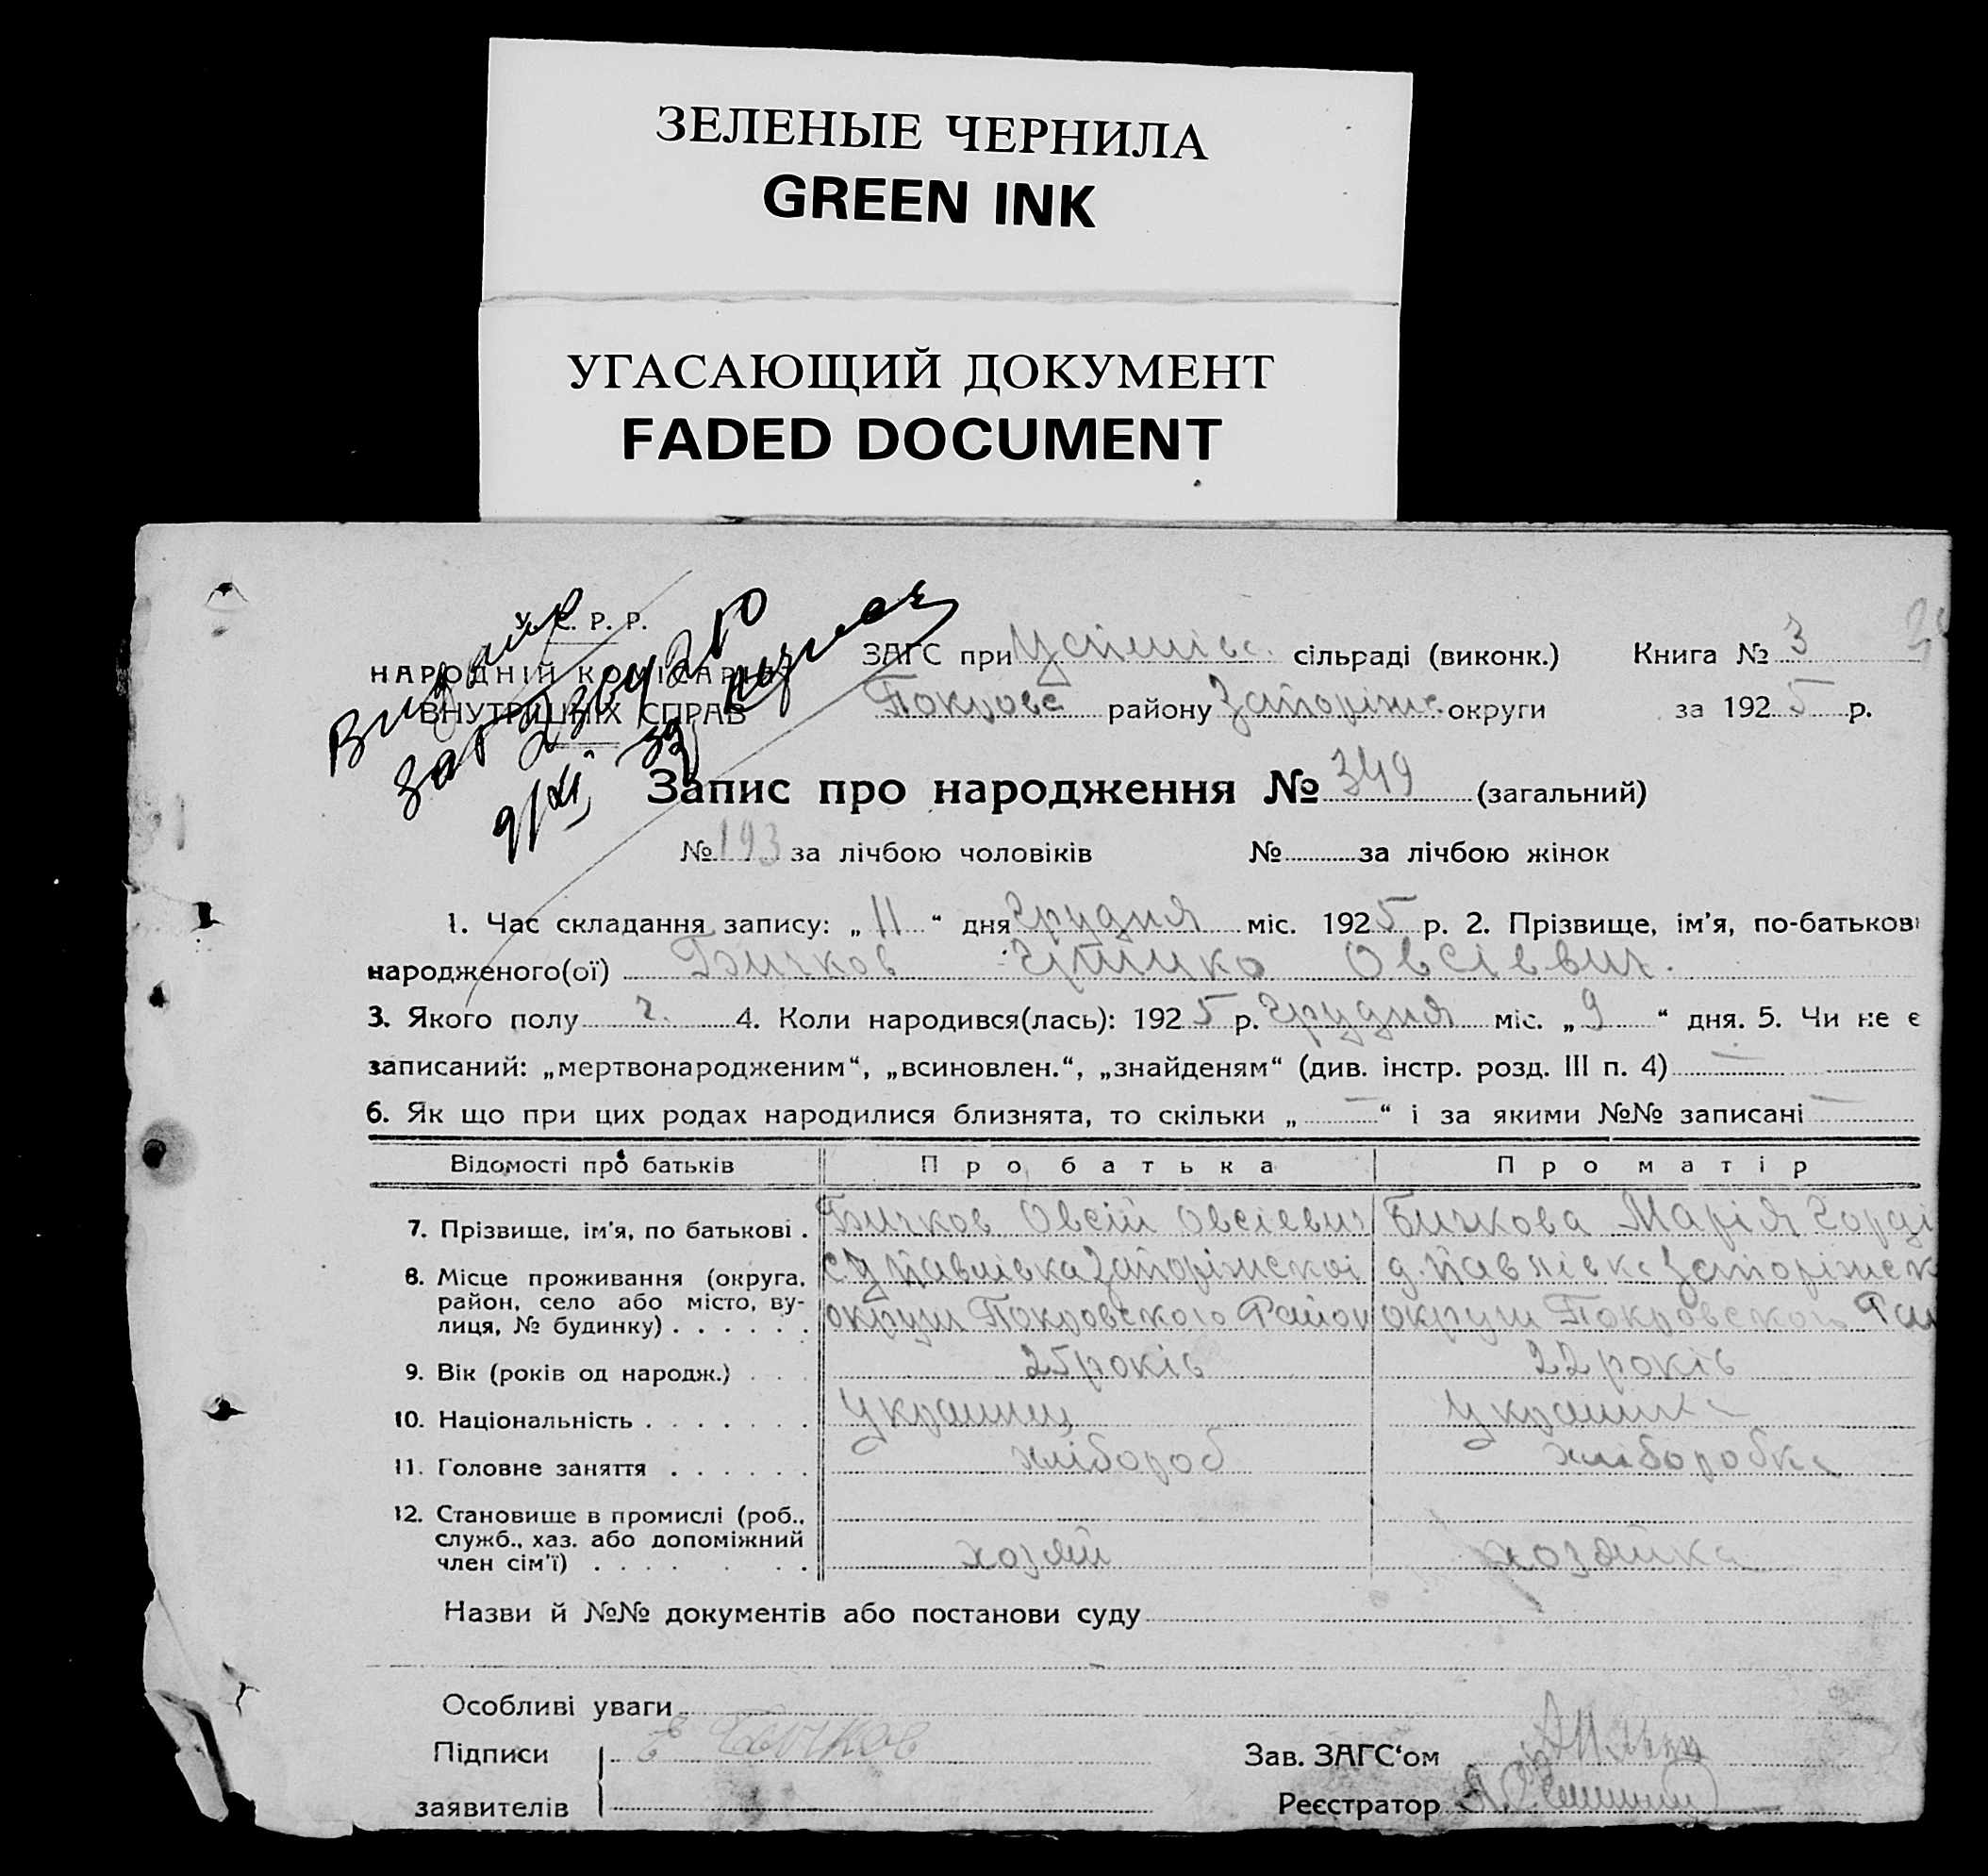 ЗЕЛЕНЫЕ ЧЕРНИЛА
GREEN INK
УГАСАЮЩИЙ ДОКУМЕНТ
FADED DOCUMENT
У. С. Р. Р.
НАРОДНІЙ КОМІСАРІЯТ
ВНУТРІШНІХ СПРАВ
ЗАГС при Успенівс. сільраді (виконк.) Книга № 3
Покровс району Запоріжс. округи за 1925 р.
Запис про народження № 349 (загальний)
№ 193 за лічбою чоловіків № за лічбою жінок
1. Час складання запису: „11“ дня Грудня міс. 1925 р. 2. Прізвище, ім'я, по-батькові
народженого(ої) Бичков Овсієвич.
3. Якого полу ч. 4. Коли народився(лась): 1925 р. Грудня міс. „9“ дня. 5. Чи не є
записаний: „мертвонародженим“, „всиновлен.“, „знайденям“ (див. інстр. розд. III п. 4) —
6. Як що при цих родах народилися близнята, то скільки „—“ і за якими №№ записані —
Відомості про батьків Про батька Про матір
7. Прізвище, ім'я, по батькові . Бичков Овсій Овсієвич Бичкова Марія Горді
8. Місце проживання (округа, Запоріжскоі Запоріжск
район, село або місто, ву- округи Покровского Район округи Покровского Рай
лиця, № будинку) . . . . . .
9. Вік (років од народж.) . . . 25 років 22 років
10. Національність . . . . . . . Украинец Украинка
11. Головне заняття . . . . . . хлібороб хліборобка
12. Становище в промислі (роб.,
служб., хаз. або допоміжний
член сім'ї) . . . . . . . хозяй хозяйка
Назви й №№ документів або постанови суду
Особливі уваги
Підписи Бычков Зав. ЗАГС'ом
заявителів Реєстратор